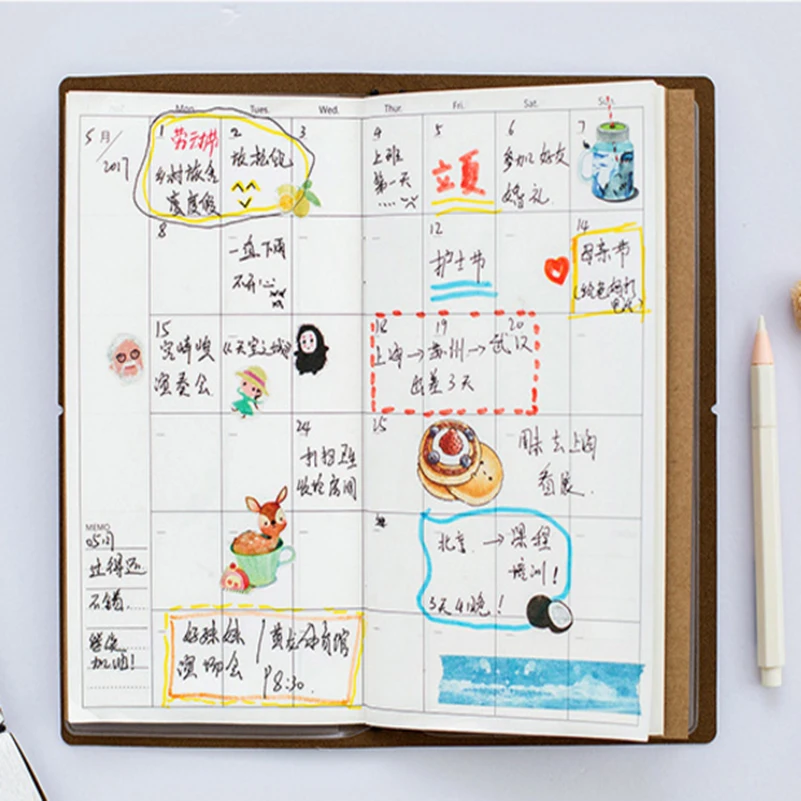 Mon. Tues. Wed. Thur. Fri. Sat. Sun.
5月/
2017
1 劳动节
乡村旅舍
度假
2
3
4
上班
第一天
....
5
立夏
6
参加好友
婚礼
7
8
一直下雨
不开心
12
护士节
14
母亲节
15
宫崎骏
演奏会
《天空之城》
18 19 20
上海→苏州→武汉
出差3天
24
打扫卫生
收拾房间
25
周末去上海
看展.
北京→课程
培训!
3天4晚!
MEMO
05月
过得还
不错.
继续
加油!
好妹妹
演唱会
黄龙体育馆
P8:30.